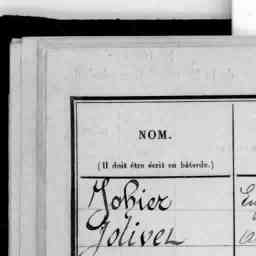 NOM.
(Il doit être écrit en bâtarde.)
Johier
Jolivel